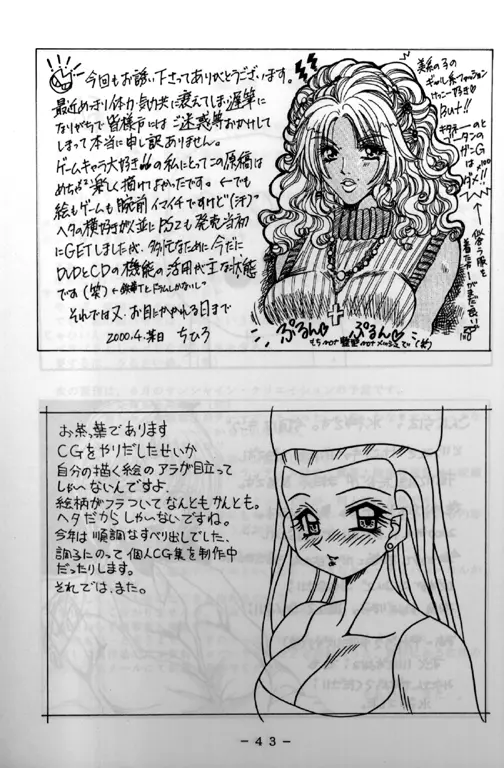 今回もお誘い下さってありがとうございます。
最近めっきり体力・気力共に衰えてしまい遅筆に
なりがちで皆様方にはご迷惑等おかけして
しまって本当に申し訳ありません。
ゲームキャラ大好きの私にとってこの原稿は
めちゃ²楽しく描けてよかったです。←でも
絵もゲームも腕前イマイチですけど"(汗)"
ヘタの横好き
PS2も発売当初
にGETしました
今だに
DVDとCDの機能の活用が主な状態
です(笑)
それでは又、お目にかかれる日まで
2000.4.某日 ちひろ
美系の子の
ギャル系ファッション
けっこー好き♡
But!!
ガンG
は
ダメ!!
似合う服を
ぷるん♡ ぷるん♡
お茶葉であります
CGをやりだしたせいか
自分の描く絵のアラが目立って
しゃーないんですよ
絵柄がフラついてなんともかんとも。
ヘタだからしゃーないですね。
今年は順調なすべり出しでした、
調子にのって個人CG集を制作中
だったりします。
それでは、また。
- 43 -